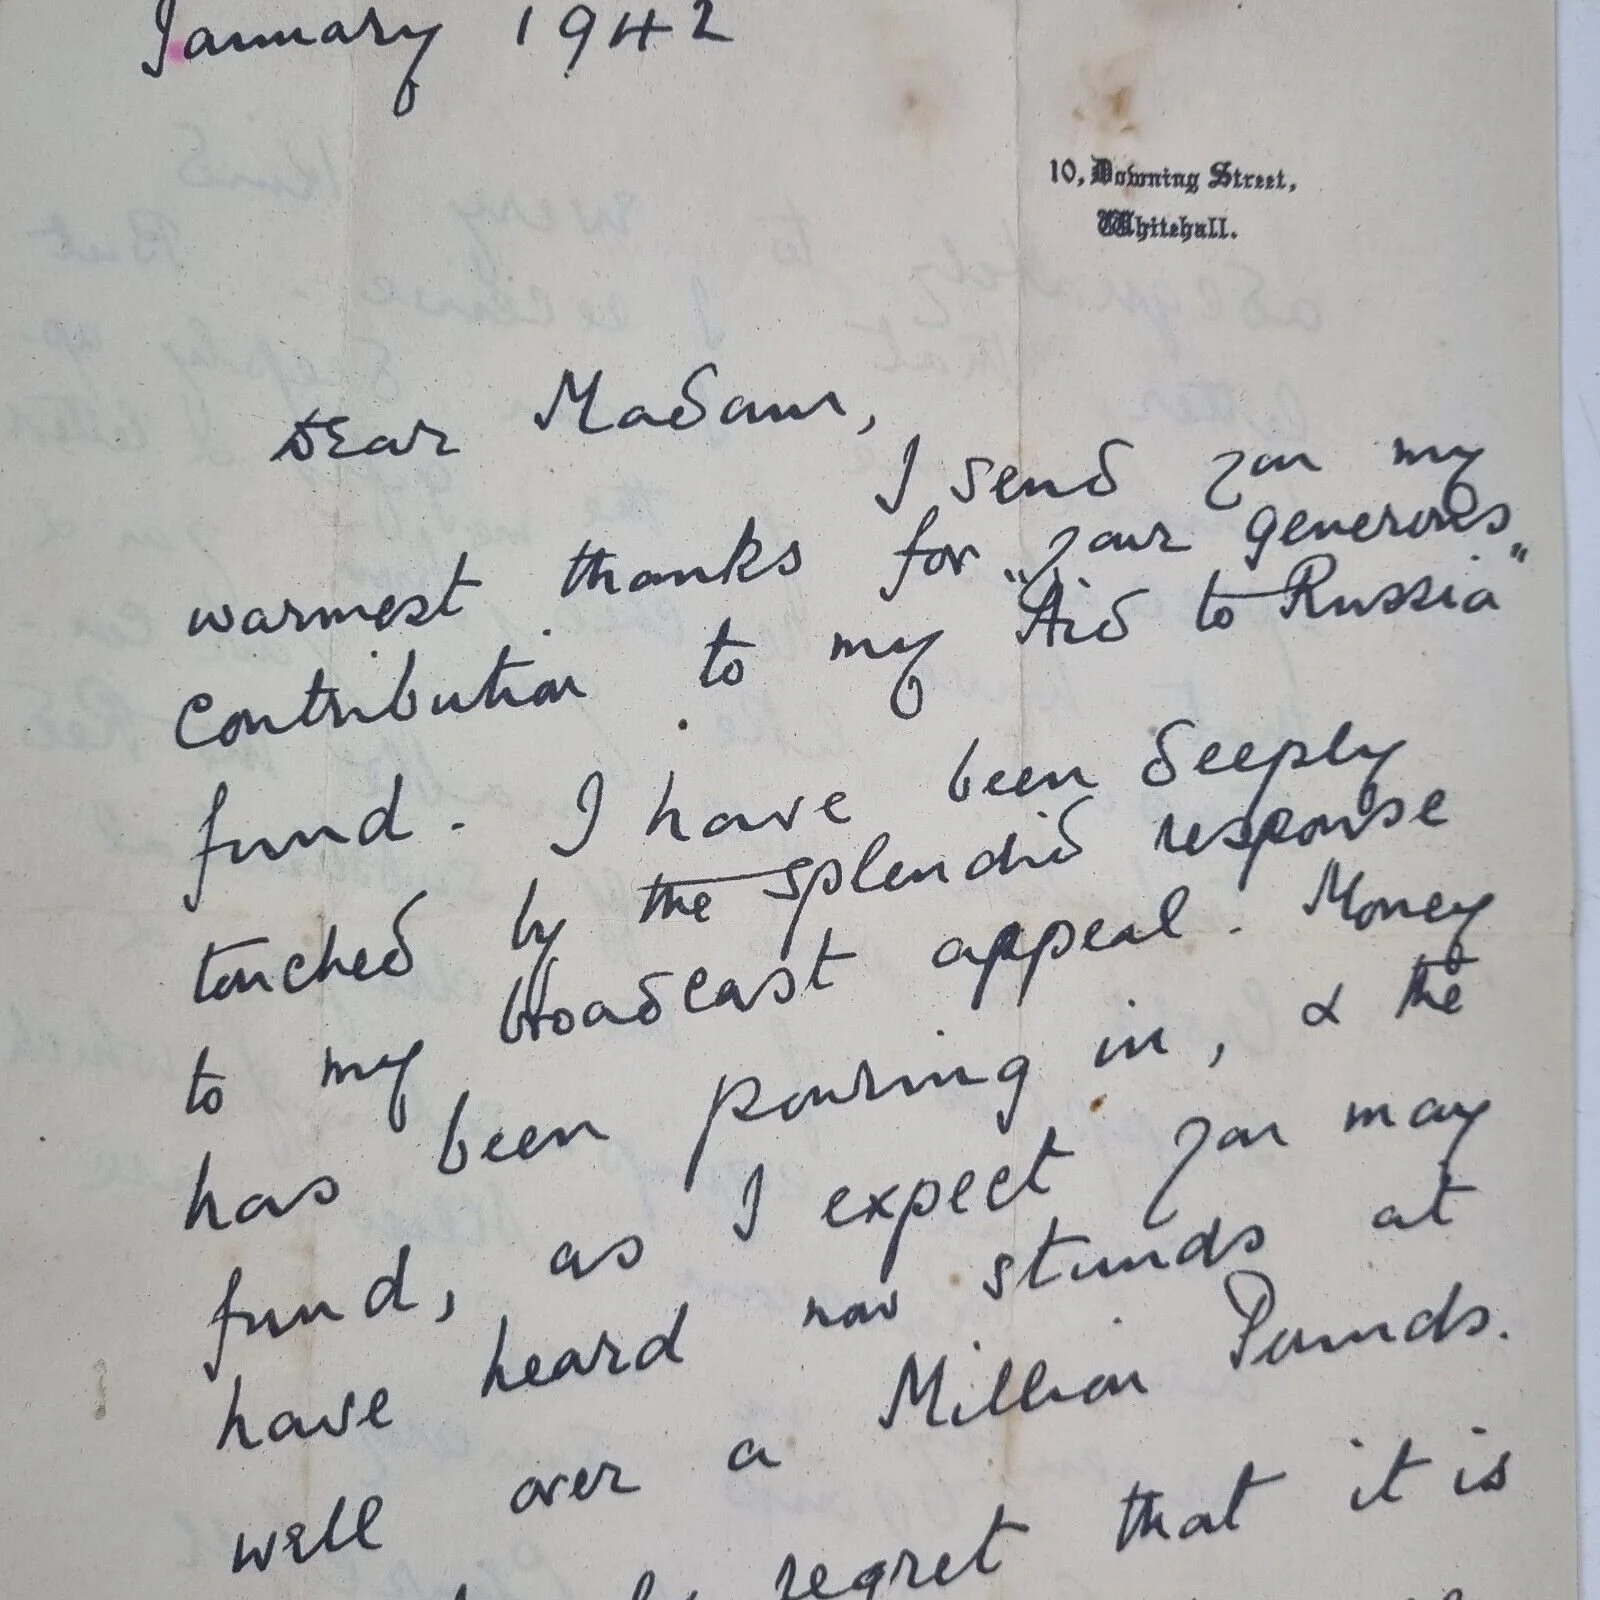 January 1942
10, Downing Street,
Whitehall.
Dear Madam,
I send you my
warmest thanks for your generous
contribution to my "Aid to Russia"
fund. I have been deeply
touched by the splendid response
to my broadcast appeal. Money
has been pouring in, & the
fund, as I expect you may
have heard now stands at
well over a Million Pounds.
regret that it is